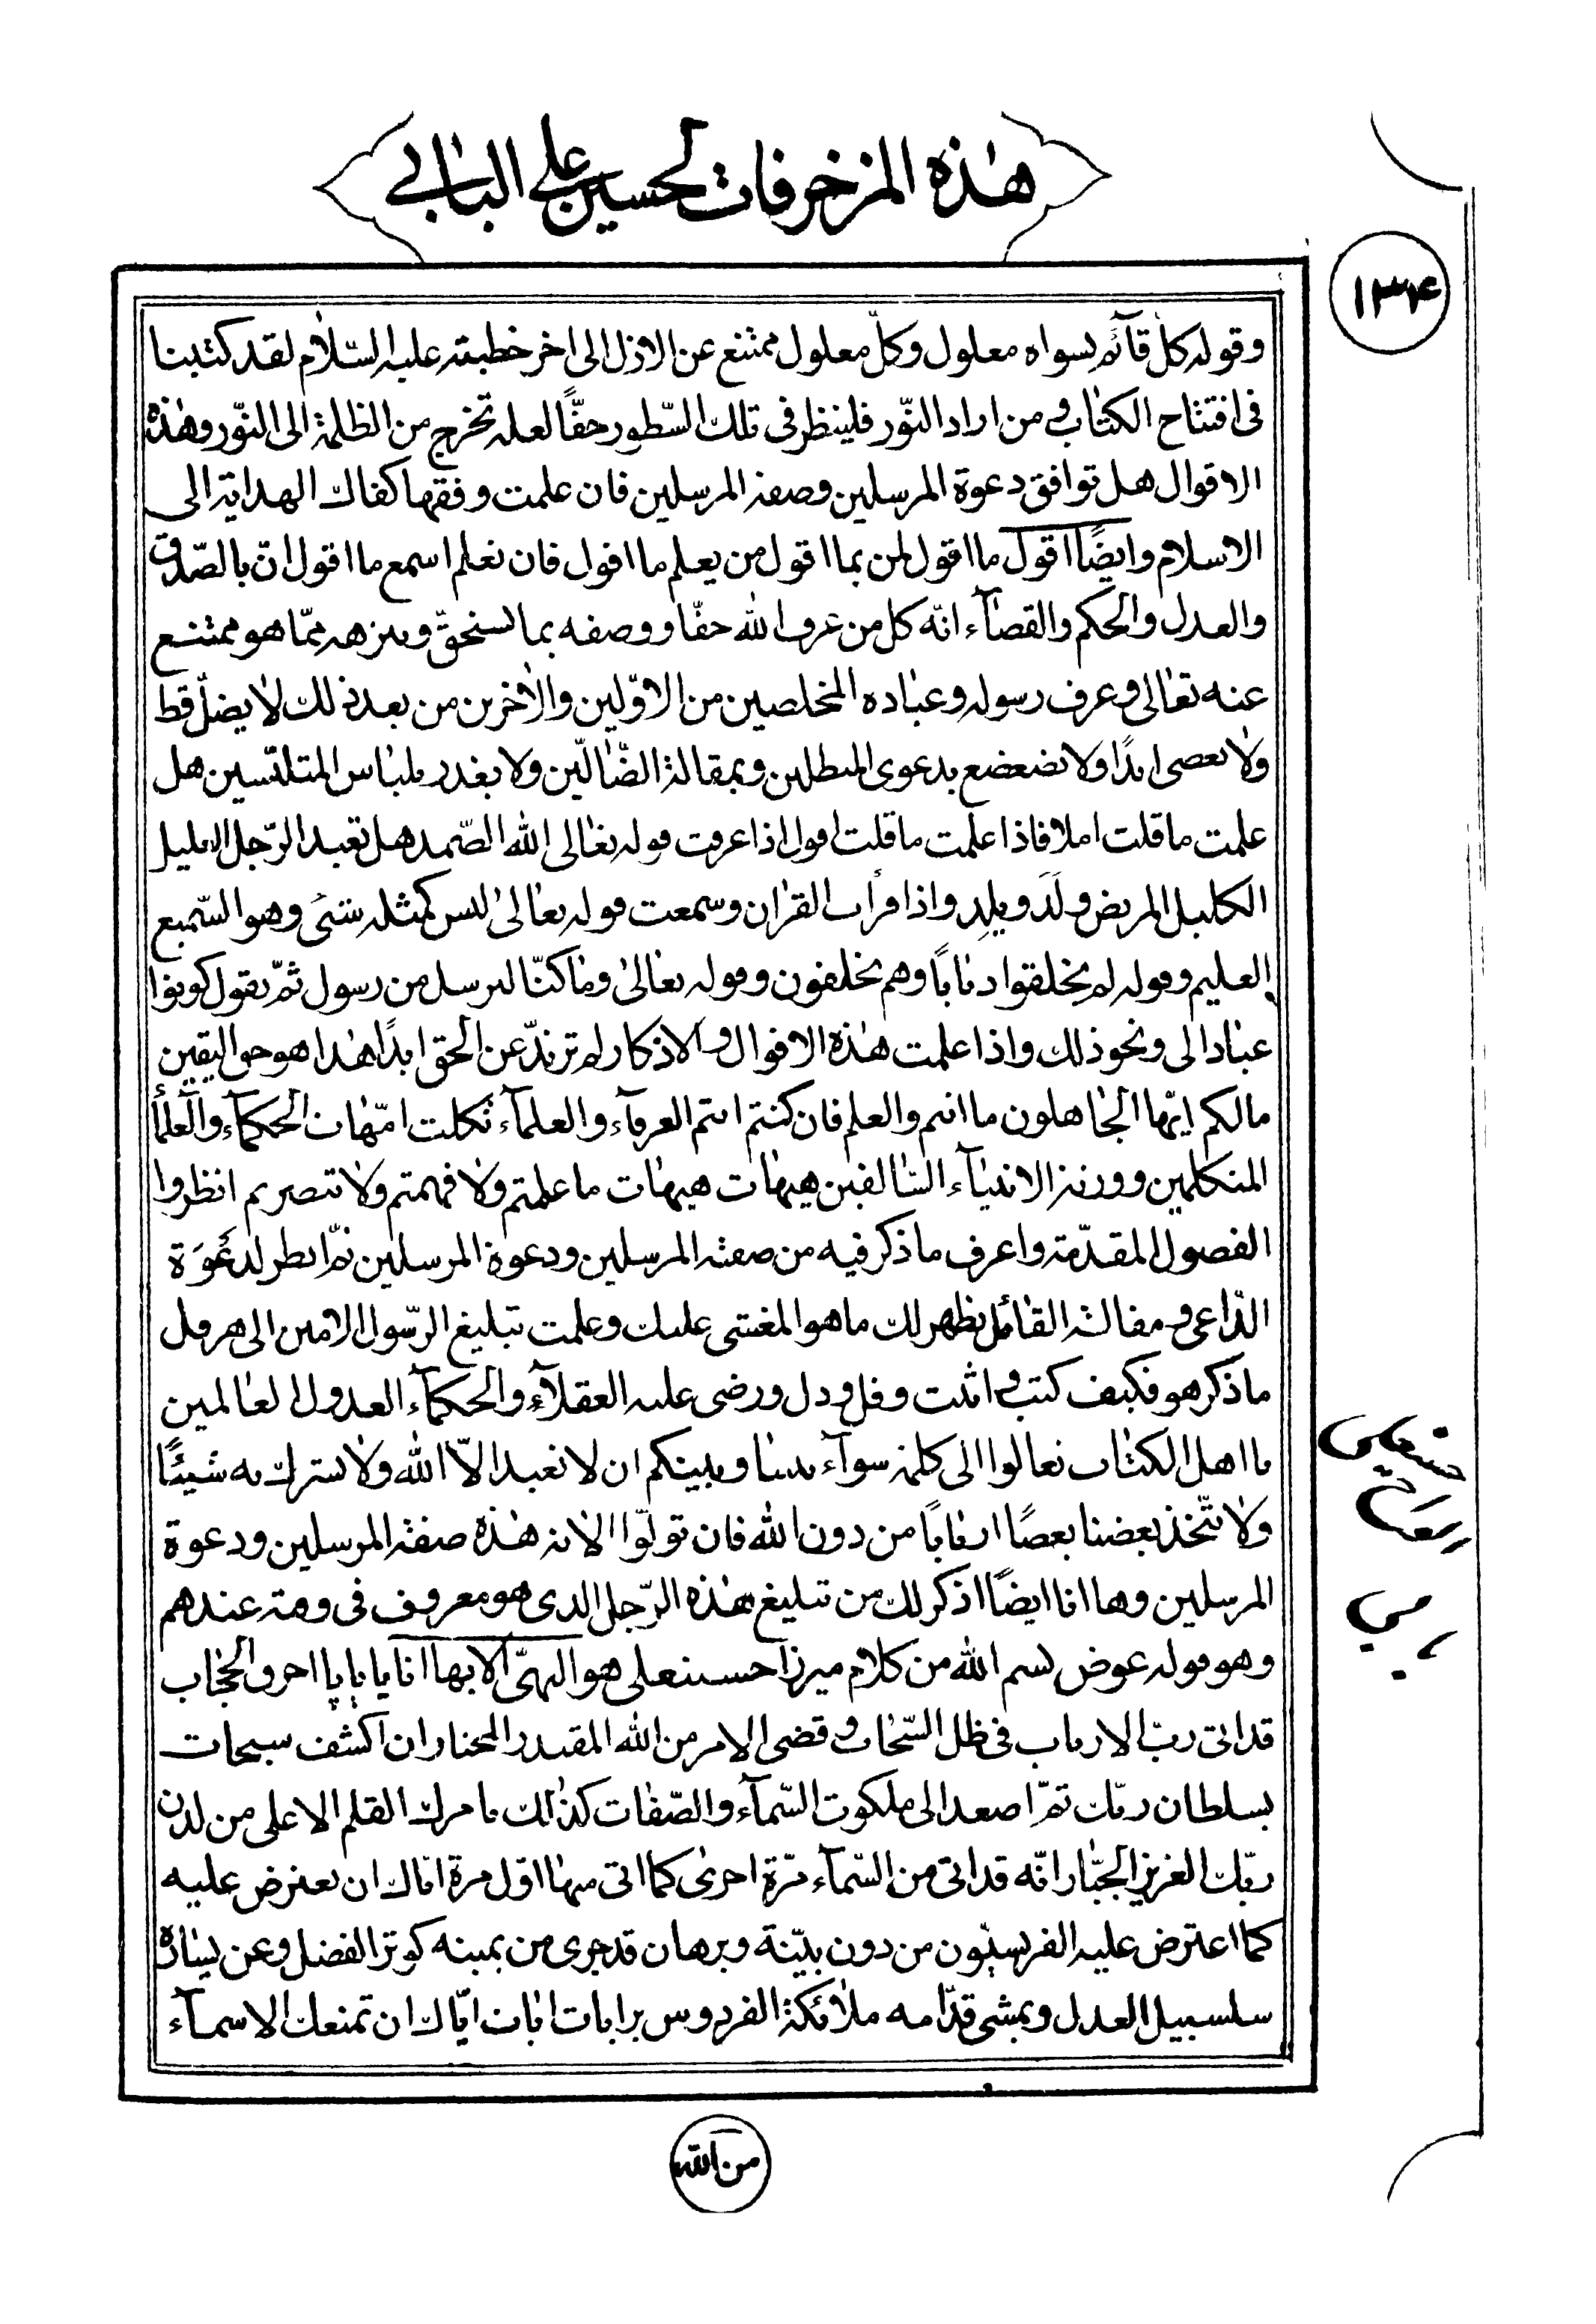 هٰذه المزخرفات لحسين علي البابي
١٣۴
وقوله كل قآئم بسواه معلول وكلّ معلول ممتنع عن الازل الى اخر خطبته عليه السّلام لقد كتبنا
فى افتتاح الكتاب ومن اراد النّور فلينظر فى تلك السّطور حقّا لعله تخرج من الظلمة الى النّور وهذه
الاقوال هل توافق دعوة المرسلين وصفة المرسلين فان علمت وفقهها كفاك الهداية الى
الاسلام وايضًا اقول ما اقول لمن بما اقول من يعلم ما اقول فان تعلم اسمع ما اقول انّ بالصّدق
والعدل والحكم والقضآء انّه كل من عرف الله حقّا ووصفه بما يستحقّ وينزهه ممّا هو ممتنع
عنه تعالى وعرف رسوله وعباده المخلصين من الاوّلين والاخرين من بعد ذلك لا يضلّ قط
ولا يعصى ابدًا ولا تضعضع بدعوى المبطلين وبمقالة الضّالّين ولا يغدر بلباس المتلبّسين هل
علمت ما قلت ام لا فاذا علمت ما قلت اقول اذا عرفت قوله تعالى الله الصّمد هل تعبد الرّجل
الكليل المريض ولَدَ ويلِد واذا قرأت القران وسمعت قوله تعالى ليس كمثله شئ وهو السّميع
العليم وقوله لم يخلقوا ذبابًا وهم يخلقون وقوله تعالى وماكنّا لنرسل من رسول ثمّ يقول كونوا
عبادا لى ونحو ذلك واذا علمت هذه الاقوال والاذكار لم ترتدّ عن الحق ابدًا هذا هو حق اليقين
مالكم ايّها الجاهلون ما انتم والعلم فان كنتم انتم العرفآء والعلمآء ثكلت امّهات الحكمآء والعلمآء
المتكلمين وورثة الانبيآء السّالفين هيهات هيهات ما علمتم ولا فهمتم ولا تتصريم انظروا
الفصول المقدّمة واعرف ما ذكر فيه من صفة المرسلين ودعوة المرسلين ثمّ انظر لدعْوَة
الدّاعى ومقالة القائل يظهر لك ما هو المغشى عليك وعلمت تبليغ الرّسول الامين الى هرقل
ما ذكر هو فكيف كتب واثبت وقل ودل ورضى عليه العقلآء والحكمآء العدول العالمين
يا اهل الكتاب تعالوا الى كلمة سوآء بيننا وبينكم ان لا نعبد الّا الله ولا نشرك به شيئًا
ولا يتّخذ بعضنا بعضًا اربابًا من دون الله فان تولّوا الاية هذه صفة المرسلين ودعوة
المرسلين وها انا ايضًا اذكر لك من تبليغ هذه الرّجل الذى هو معروف فى وقته عندهم
وهو قوله عوض بسم الله من كلام ميرزا حسينعلى هو البهىّ الابها انا يا بابا احرق الحجاب
قد اتى ربّ الارباب فى ظل السّحاب وقضى الامر من الله المقتدر المختار ان اكشف سبحات
بسلطان ربّك ثمّ اصعد الى ملكوت السّمآء والصّفات كذلك يامرك القلم الاعلى من لدن
ربّك العزيز الجبّار انّه قد اتى من السّمآء مرّة اخرى كما اتى منها اوّل مرة ايّاك ان تعترض عليه
كما اعترض عليه الفريسيّون من دون بيّنة وبرهان قد جرى من يمينه كوثر الفضل وعن يساره
سلسبيل العدل ويمشى قدّامه ملائكة الفردوس برايات ايات ايّاك ان تمنعك الاسمآء
من الله